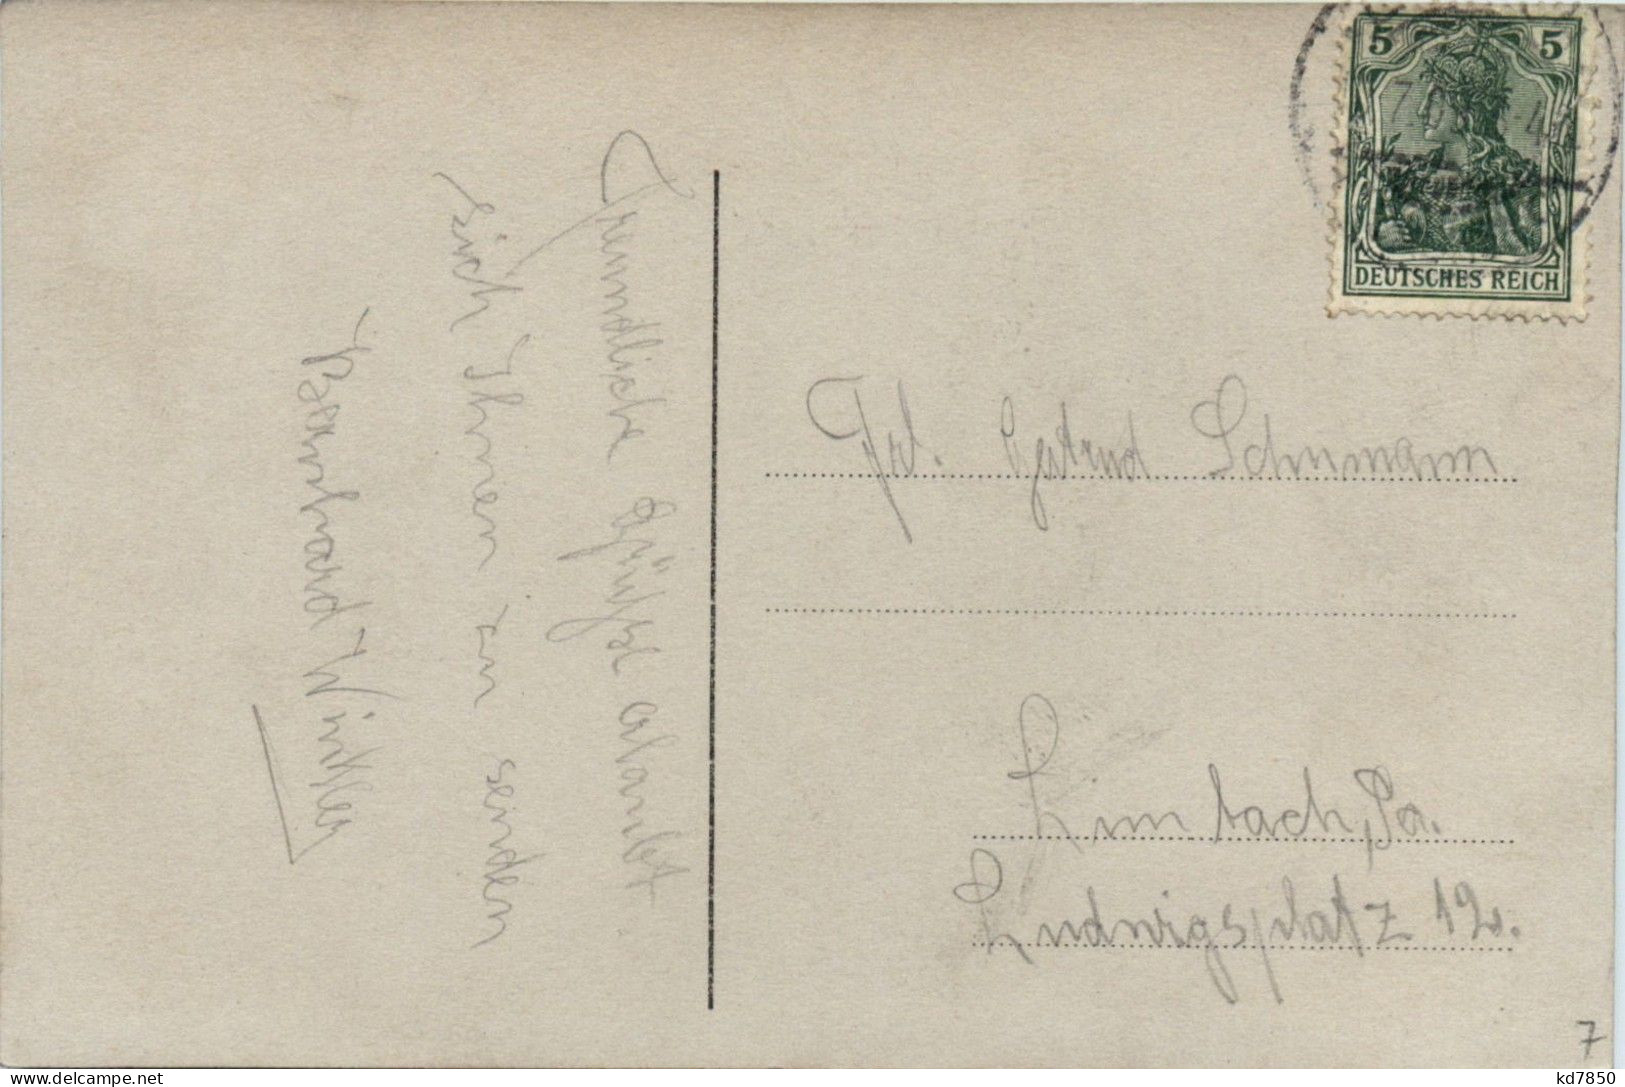 Freundliche Grüße erlaubt
sich Ihnen zu senden
Bernhard Winkler
5 5
DEUTSCHES REICH
Frl. Gertrud Schumann
Limbach, Sa.
Ludwigsplatz 12.
7
www.delcampe.net
kd7850